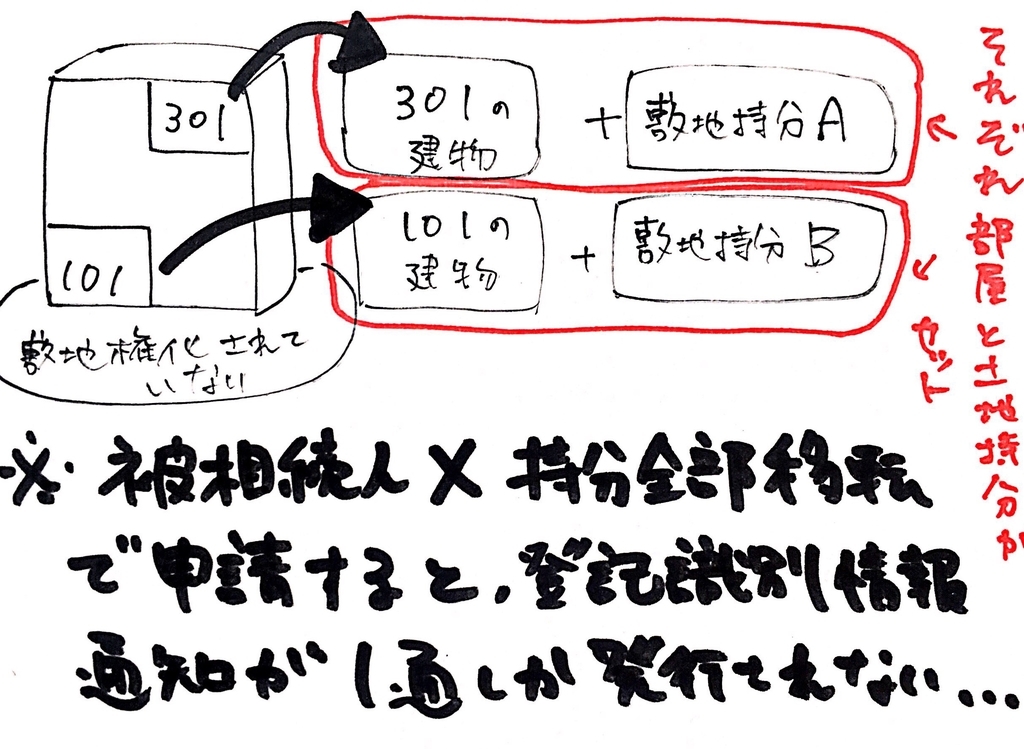 301
301の
建物
+
敷地持分A
101
101の
建物
+
敷地持分B
敷地権化されて
いない
それぞれ部屋と土地持分が
セット
※被相続人X持分全部移転
で申請すると、登記識別情報
通知が1通しか発行されない...